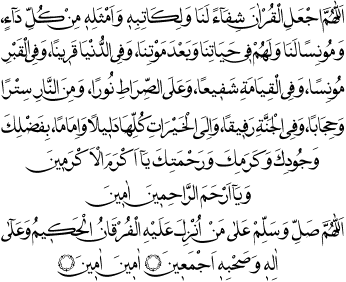 اَللّٰهُمَّ اجْعَلِ الْقُرْاٰنَ شِفَاۤءً لَنَا وَلِكَاتِبِهٖ وَاَمْثَالِهٖ مِنْ كُلِّ دَاۤءٍ،
وَمُونِسًا لَنَا وَلَهُمْ فِى حَيَاتِنَا وَبَعْدَ مَوْتِنَا، وَفِى الدُّنْيَا قَرِينًا، وَفِى الْقَبْرِ
مُونِسًا، وَفِى الْقِيَامَةِ شَفِيعًا، وَعَلَى الصِّرَاطِ نُورًا، وَمِنَ النَّارِ سِتْرًا
وَحِجَابًا، وَفِى الْجَنَّةِ رَفِيقًا، وَاِلَى الْخَيْرَاتِ كُلِّهَا دَلِيلًا وَاِمَامًا، بِفَضْلِكَ
وَجُودِكَ وَكَرَمِكَ وَرَحْمَتِكَ يَاۤ اَكْرَمَ الْاَكْرَمِينَ
وَيَاۤ اَرْحَمَ الرَّاحِمِينَ اٰمِينَ
اَللّٰهُمَّ صَلِّ وَسَلِّمْ عَلٰى مَنْ اُنْزِلَ عَلَيْهِ الْفُرْقَانُ الْحَكِيمُ وَعَلٰىۤ
اٰلِهٖ وَصَحْبِهٖۤ اَجْمَعِينَ ۞ اٰمِينَ اٰمِينَ ۞